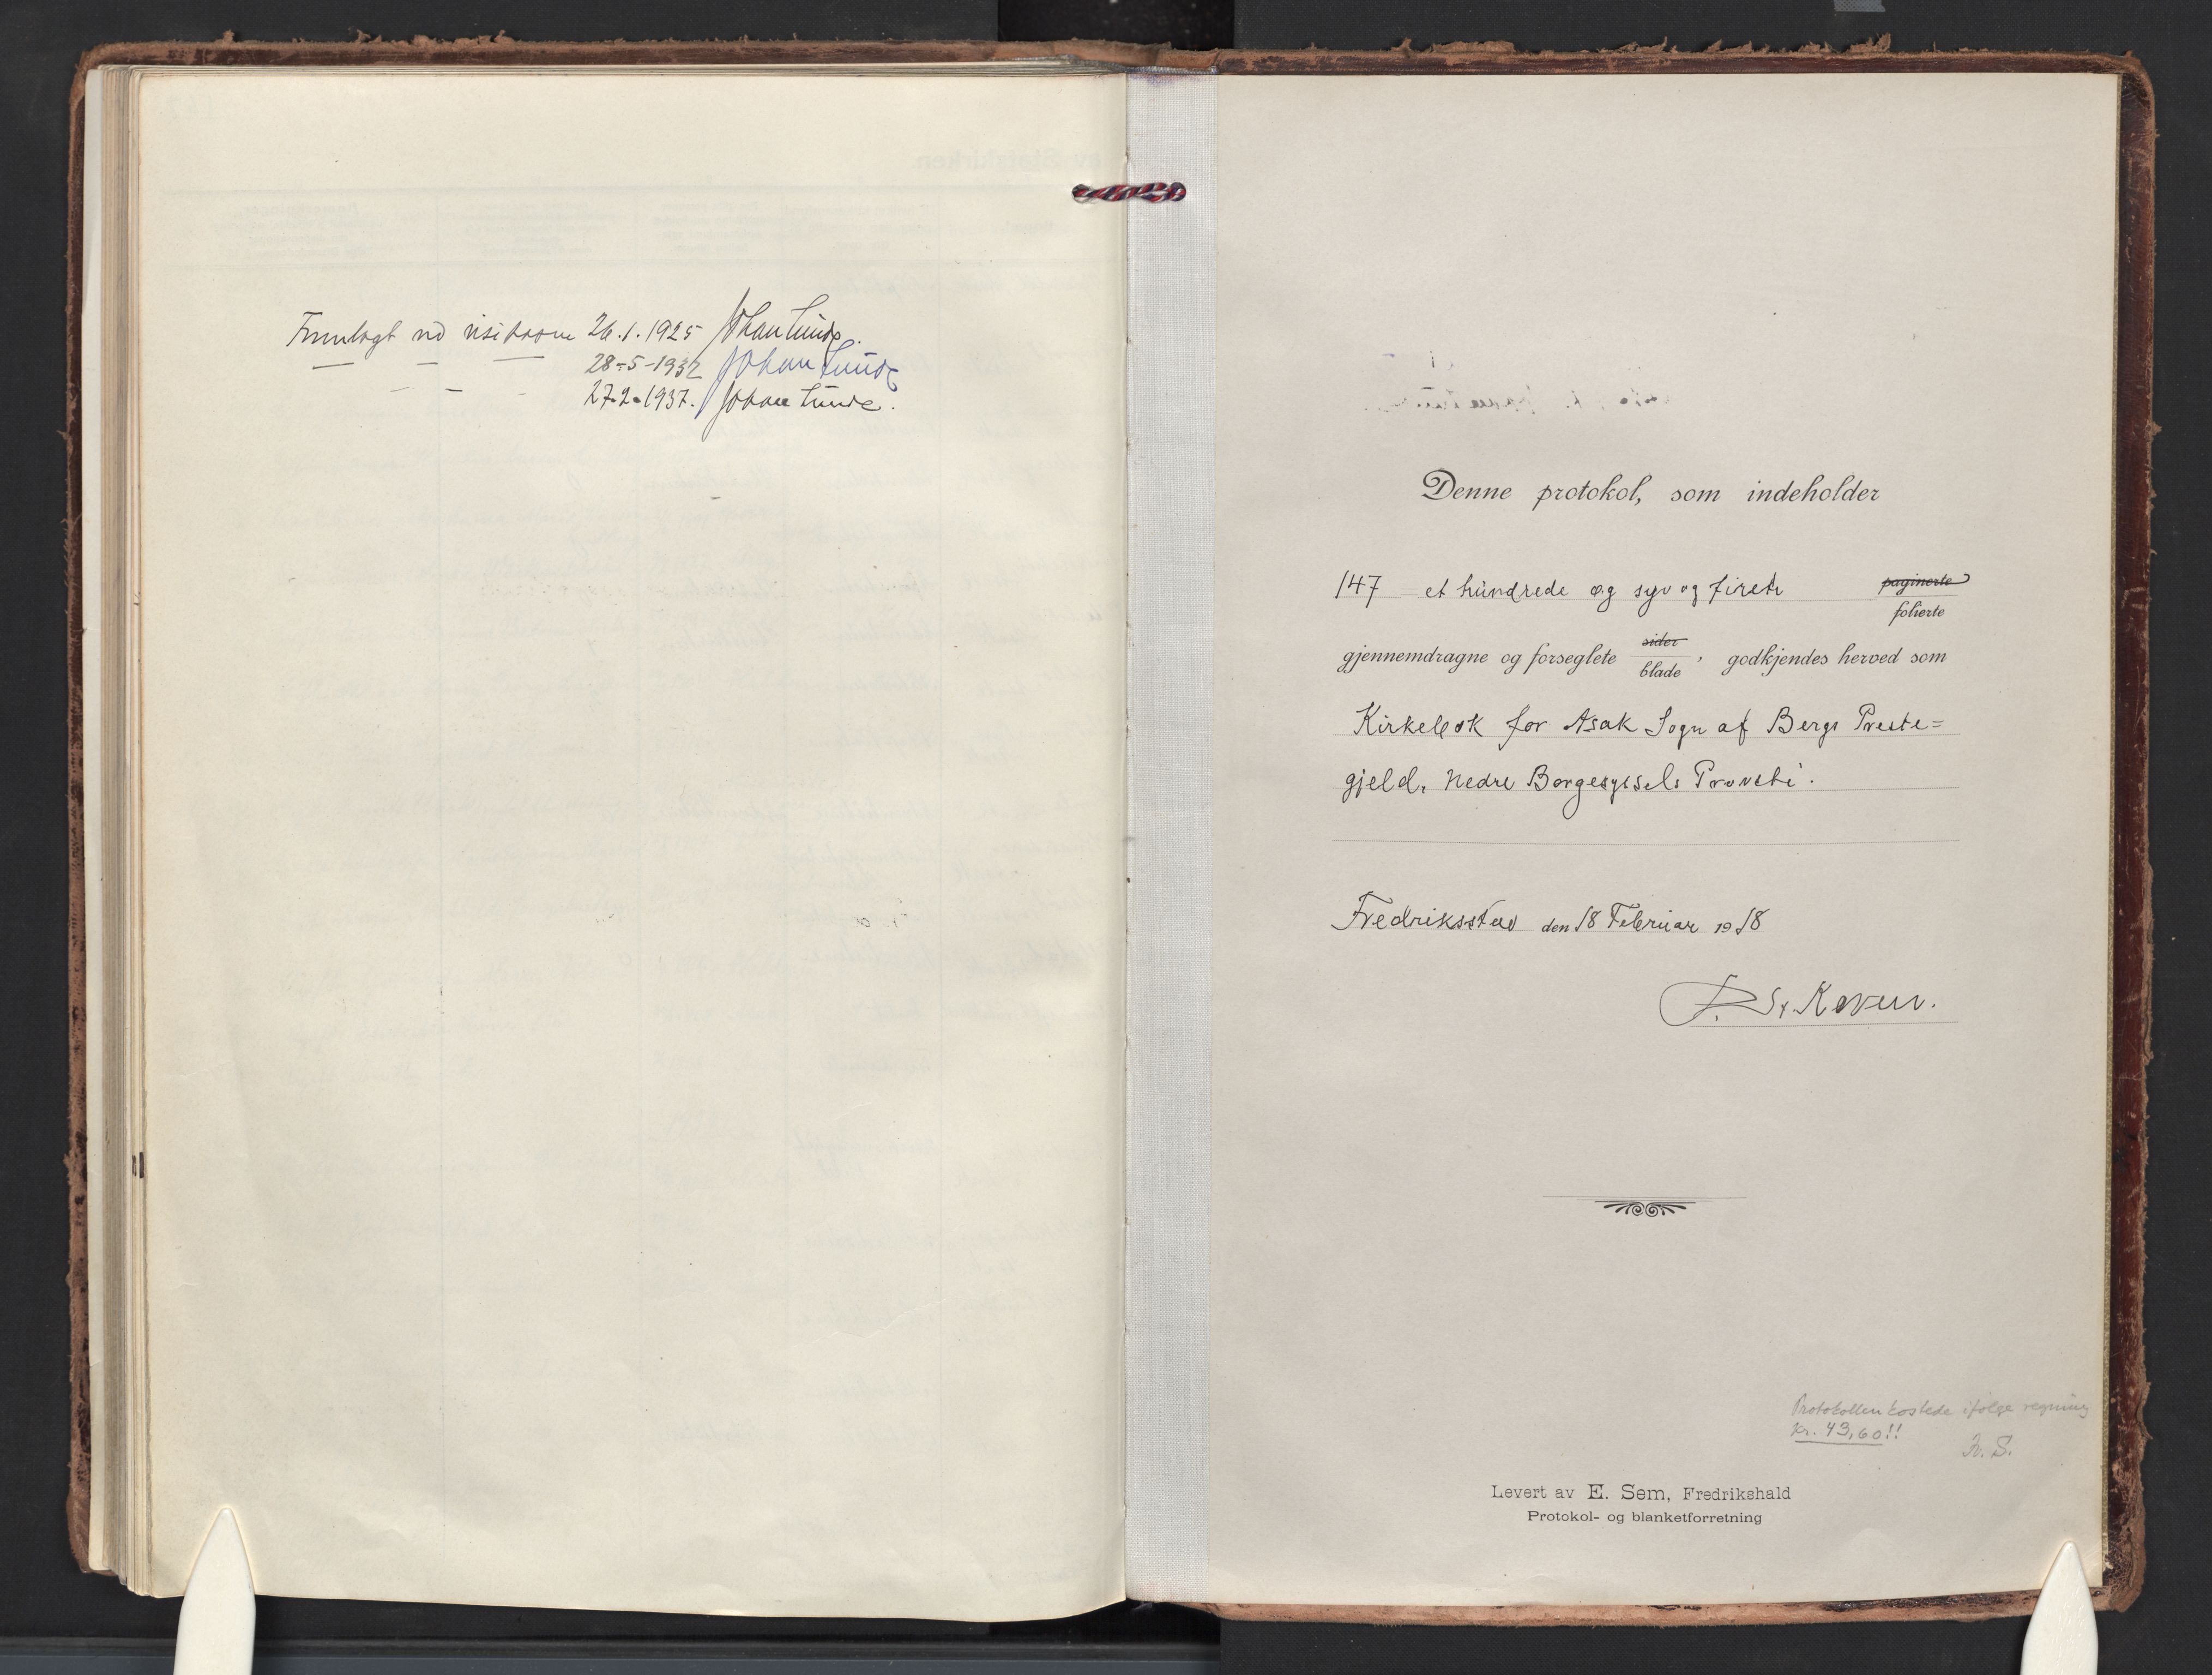 Fremlagt ved visitasen 26.1.1925 Johan Lunde.
— — — 28-5-1932 Johan Lunde
— — - 27-2-1937. Johan Lunde.
Denne protokol, som indeholder
147 et hundrede og syv og fireti paginerte
folierte
gjennemdragne og forseglete sider
blade, godkjendes herved som
Kirkebok for Asak Sogn af Bergs Preste=
gjeld, Nedre Borgesyssels Provsti.
Fredriksstad den 18 Februar 1918
Protokollen kostede ifølge regning
Kr. 43,60!!
Levert av E. Sem, Fredrikshald
Protokol- og blanketforretning